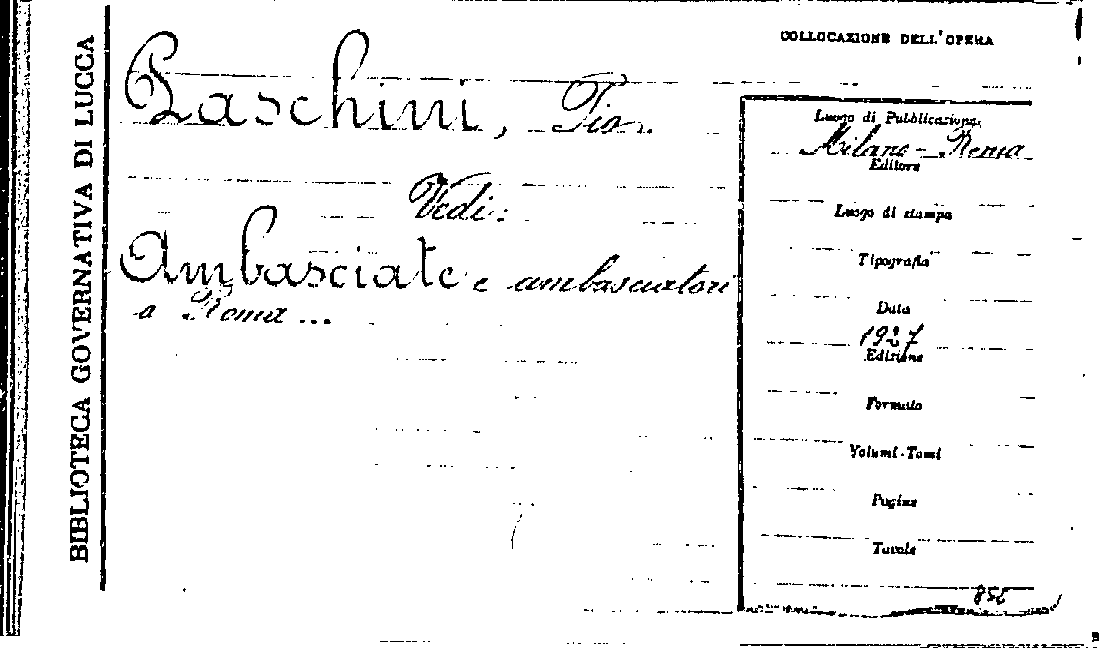 BIBLIOTECA GOVERNATIVA DI LUCCA
COLLOCAZIONE DELL'OPERA
Paschini, Pio.
Vedi:
Ambasciate e ambasciatori
a Roma ...
Luogo di Pubblicazione
Milano - Roma
Editore
Luogo di stampa
Tipografia
Data
1927
Edizione
Formato
Volumi - Tomi
Pagine
Tavole